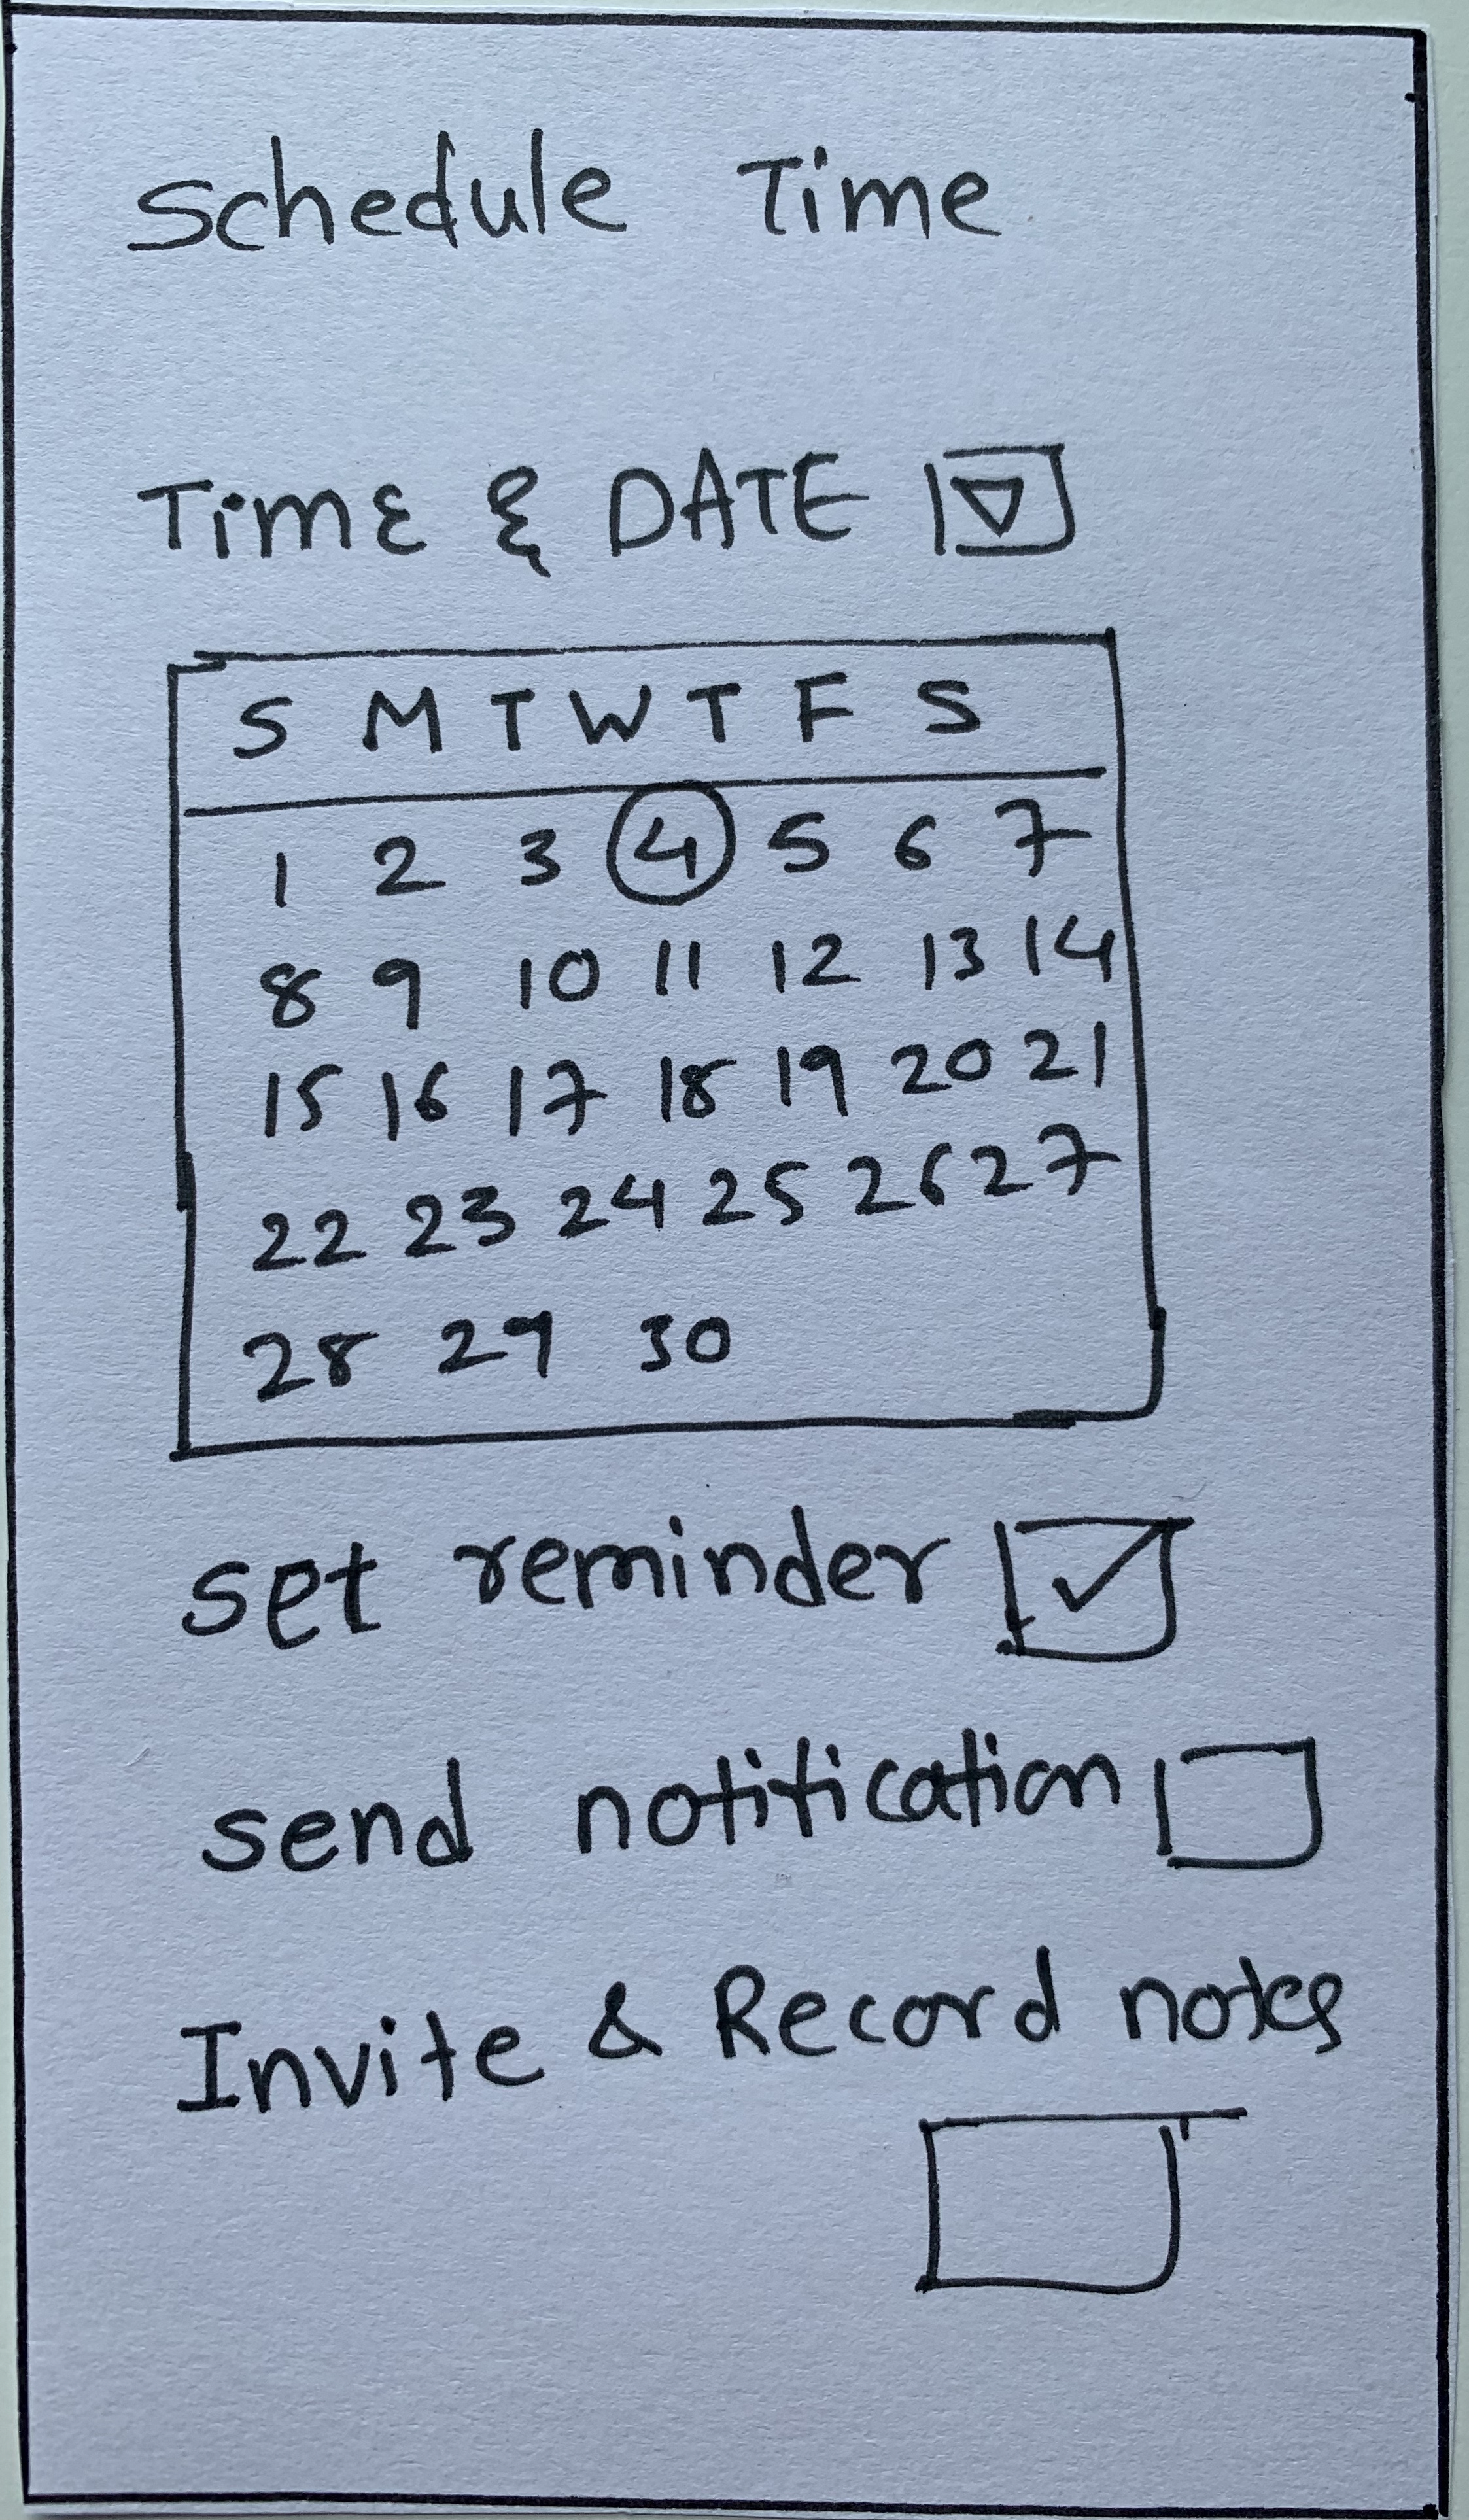 Schedule Time
Time & DATE
S M T W T F S
1 2 3 4 5 6 7
8 9 10 11 12 13 14
15 16 17 18 19 20 21
22 23 24 25 26 27
28 29 30
set reminder
send notification
Invite & Record notes